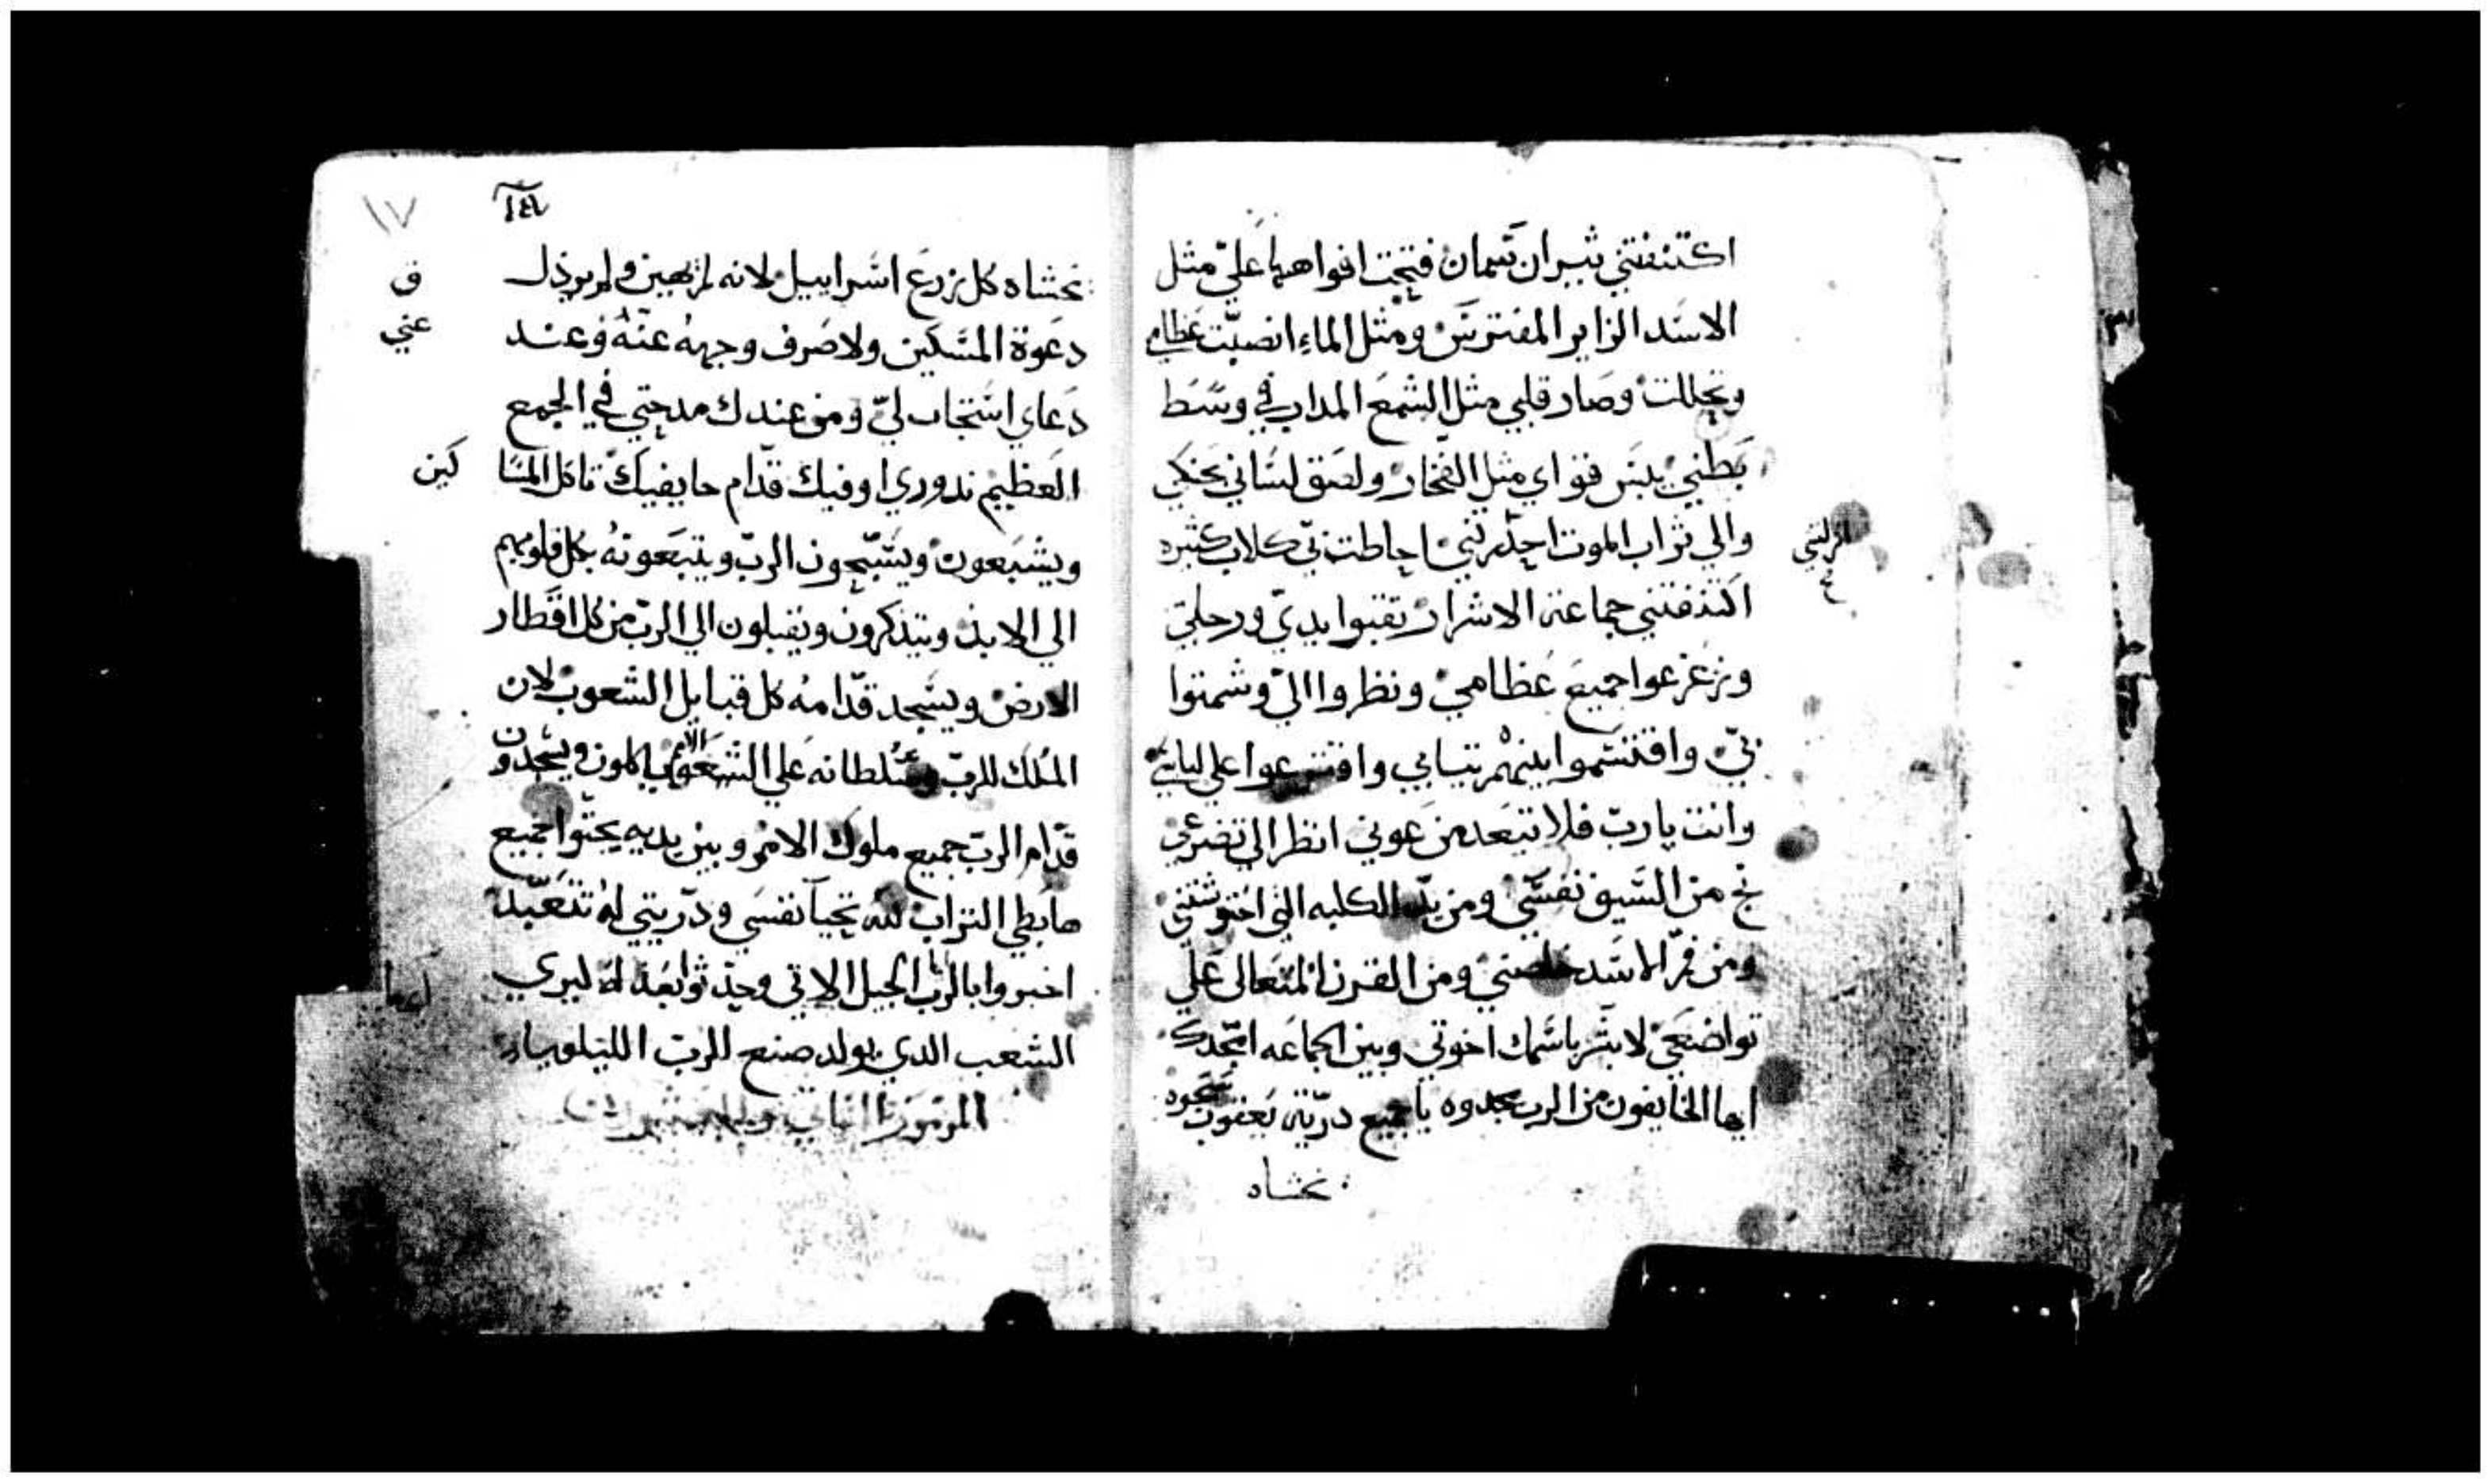 اكتنفتني ثيران سمان فتحت افواهها علي مثل
الاسد الزاير المفترس ومثل الماء انصبت عظامي
وتحللت وصار قلبي مثل الشمع المداب في وسط
بطني يبس قواي مثل الفخار ولصق لساني بحنكي
والي تراب الموت احدرتني احاطت بي كلاب كثيره
انزلتني
اكتنفتني جماعة الاشرار تقبوا يدي ورجلي
وزعزعوا جميع عظامي ونظروا الي وشمتوا
بي واقتسموا بينهم تيابي واقترعوا علي لباسي
وانت يا رب فلا تبعد من عوني انظر الي تضرعي
نج من السيف نفسي ومن يد الكلبه التي احتوشتني
ومن فم الاسد خلصني ومن القرن المتعالي علي
تواضعي لابشر باسمك اخوتي وبين الجماعه امجدك
ايها الخايفون من الرب مجدوه يا جميع درية يعقوب
نخشاه
١٧
نخشاه كل زرع اسراييل لانه لم يهين ولم يرذل
دعوة المسكين ولا صرف وجهه عنه وعند
عني
دعاي استجاب لي ومن عندك مدحتي في الجمع
العظيم ندوري اوفيك قدام خايفيك تاكل المسا
كين
ويشبعون ويسبحون الرب ويتبعونه بكل قلوبهم
الي الابد ويتذكرون ويقبلون الي الرب من كل اقطار
الارض ويسجد قدامه كل قبايل الشعوب لان
الملك للرب وسلطانه علي الشعوب ياكلون ويسجدون
قدام الرب جميع ملوك الامم وبين يديه يجتوا جميع
هابطي التراب لله تحيا نفسي ودريتي له تتعبد
اخبروا بالرب الجيل الاتي وحدثوا بعدله ليري
الشعب الدي يولد صنع الرب الليلوياء
المزمور الثاني والعشرون